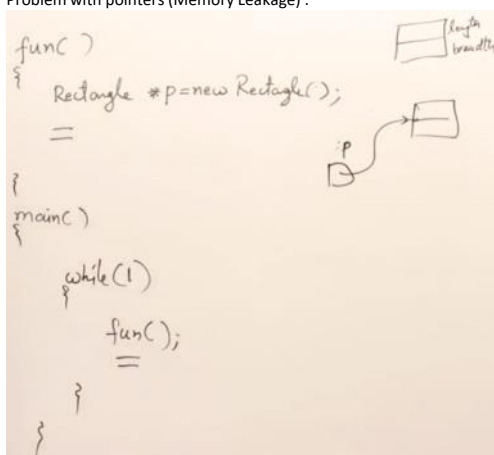 Problem with pointers (Memory Leakage) :
fun( )
{
Rectangle *p=new Rectagle( );
=
}
main( )
{
while(1)
{
fun( );
=
}
}
length
breadth
p